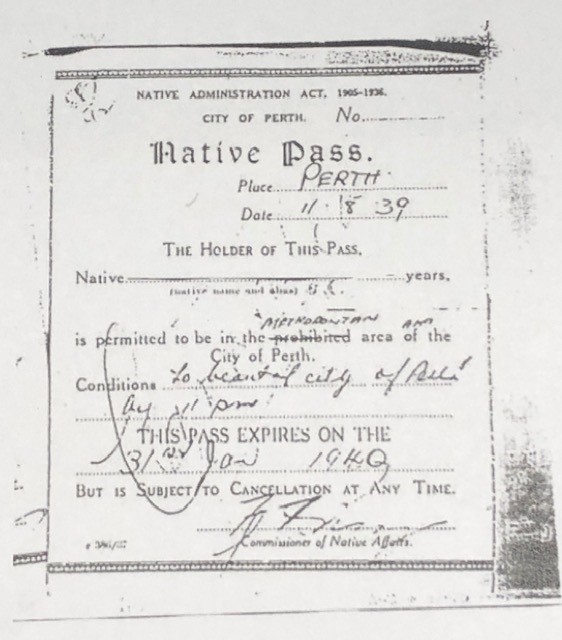 NATIVE ADMINISTRATION ACT, 1905-1936.
CITY OF PERTH. No.
Native Pass.
Place PERTH
Date 11.8.39
THE HOLDER OF THIS PASS,
Native years,
(native name and alias)
METROPOLITAN AND
is permitted to be in the prohibited area of the
City of Perth.
Conditions to be out of city of Perth
by 11 pm
THIS PASS EXPIRES ON THE
31st Jan 1940
BUT IS SUBJECT TO CANCELLATION AT ANY TIME.
Commissioner of Native Affairs.